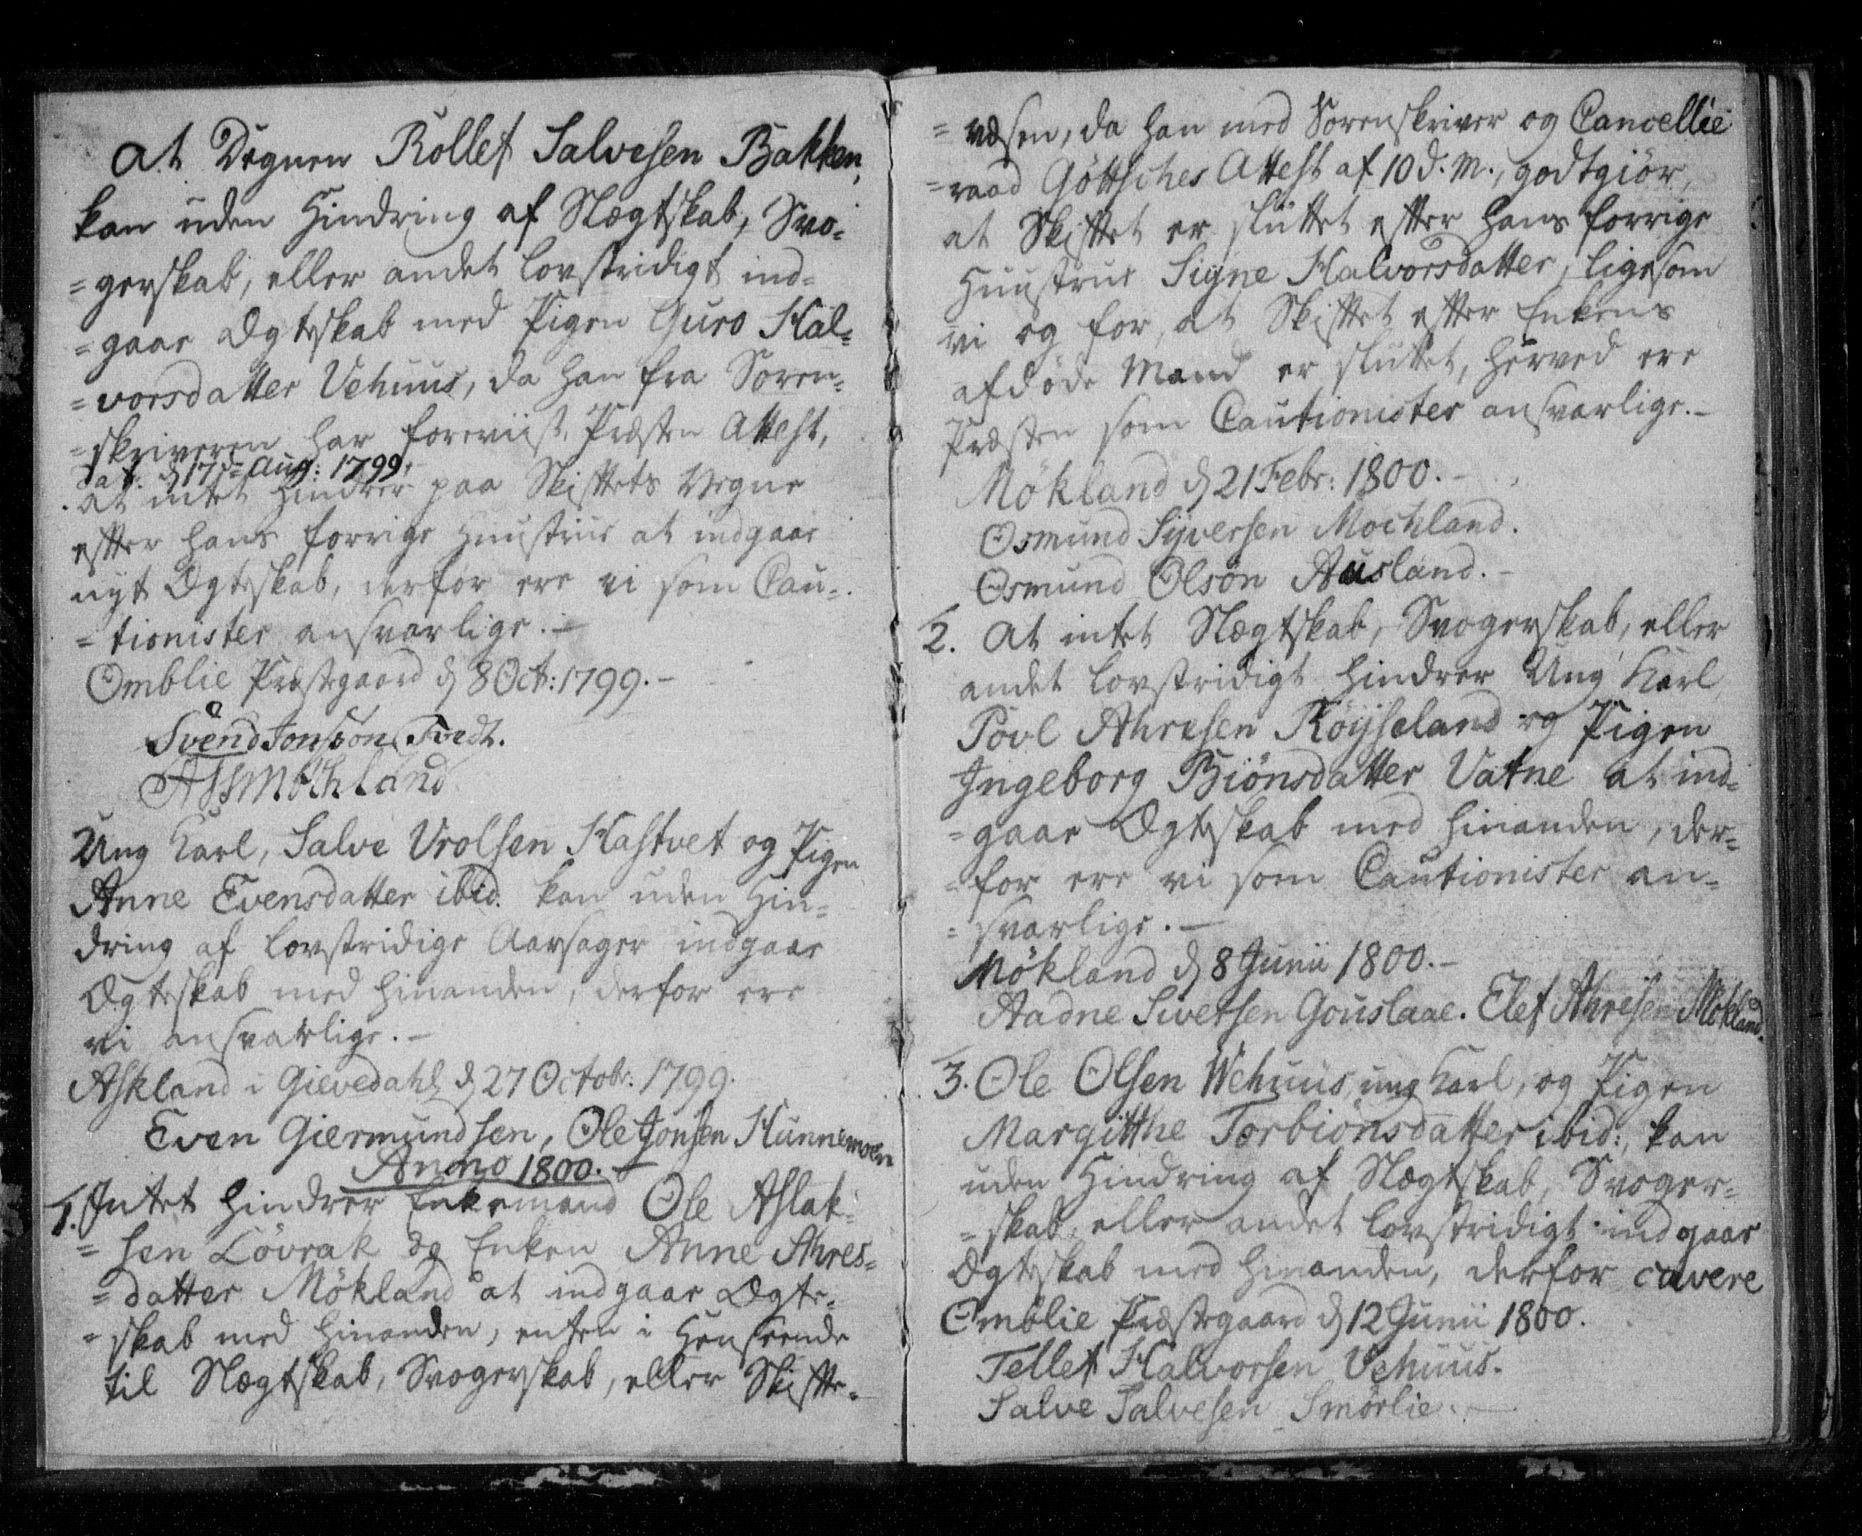 At Degnen Rollef Salvesen Bakken,
kan uden Hindring af Slægtskab, Svo-
=gerskab, eller andet lovstridigt ind-
=gaae Ægteskab med Pigen Guro Hal-
=vorsdatter Vehuus, da han fra Soren-
=skriveren har foreviist Præsten Attest,
dat. d 17de Aug: 1799,
at intet hindrer paa Skiftets Vegne
efter hans forrige Huustrue at indgaae
nyt Ægteskab, derfor ere vi som Cau-
=tionister ansvarlige.—
Omblie Præstegaard d 8 Oct: 1799.—
Svend Jonsøon Tvedt.
Ung Karl, Salve Vrolsen Hastvet og Pigen
Anne Evensdatter ibid. kan uden Hin-
dring af lovstridige Aarsager indgaae
Ægteskab med hinanden, derfor ere
vi ansvarlige.—
Askland i Gievedahl d 27 Octobr: 1799.
Even Giermundsen, Ole Jonsen Hunnemoen
Anno 1800.—
1. Intet hindrer Enkemand Ole Aslak-
=sen Løvrak og Enken Anne Ahres-
=datter Mökland at indgaae Ægte-
=skab med hinanden, enten i Henseende
til Slægtskab, Svogerskab, eller Skifte-
=væsen, da han med Sorenskriver og Cancellie
=raad Gøttsches Attest af 10 d. M., godtgiør,
at Skiftet er sluttet efter hans forrige
Huustrue Signe Halvorsdatter, ligesom
vi og for, at Skiftet efter Enkens
afdøde Mand er sluttet, herved ere
Præsten som Cautionister ansvarlige.—
Mökland d 21 Febr: 1800.—
Osmund Syversen Mochland.
Osmund Olsøn Ausland.—
2. At intet Slægtskab, Svogerskab, eller
andet lovstridigt hindrer Ung Karl
Povl Ahresen Röyseland og Pigen
Ingeborg Biönsdatter Vatne at ind-
=gaae Ægteskab med hinanden, der-
=for ere vi som Cautionister an-
=svarlige.—
Mökland d 8 Junii 1800.—
Aadne Sivetsen Gouslaae. Elef Ahresen Mökland.
3. Ole Olsen Wehuus, ung Karl, og Pigen
Margitthe Torbiönsdatter ibid:, kan
uden Hindring af Slægtskab, Svoger-
=skab, eller andet lovstridigt indgaae
Ægteskab med hinanden, derfor cavere
Omblie Præstegaard d 12 Junii 1800.
Tellef Halvorsen Vehuus.
Salve Salvesen Smörlie.—